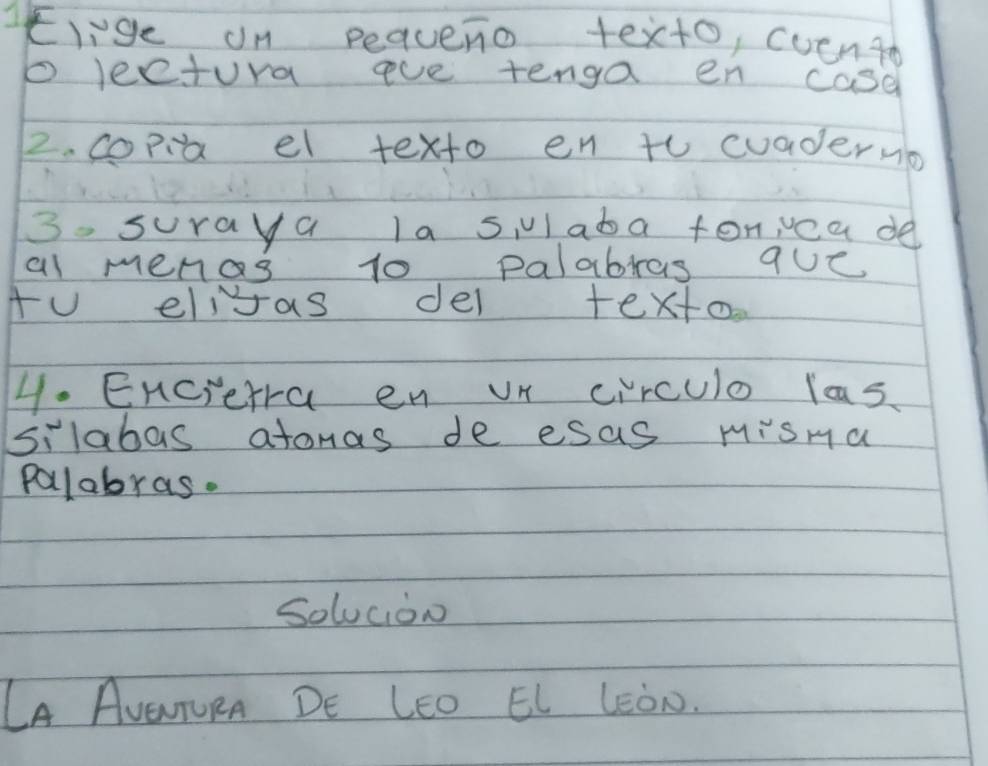 1 Elige un pequeño texto, cuento
o lectura que tenga en casa
2. copia el texto en tu cuaderno
3. suraya la silaba tonica de
al menas 10 palabras que
tu elijas del texto.
4. Encierra en un circulo las
silabas atonas de esas misma
palabras.
Solución
LA AVENTURA DE LEO EL LEÓN.